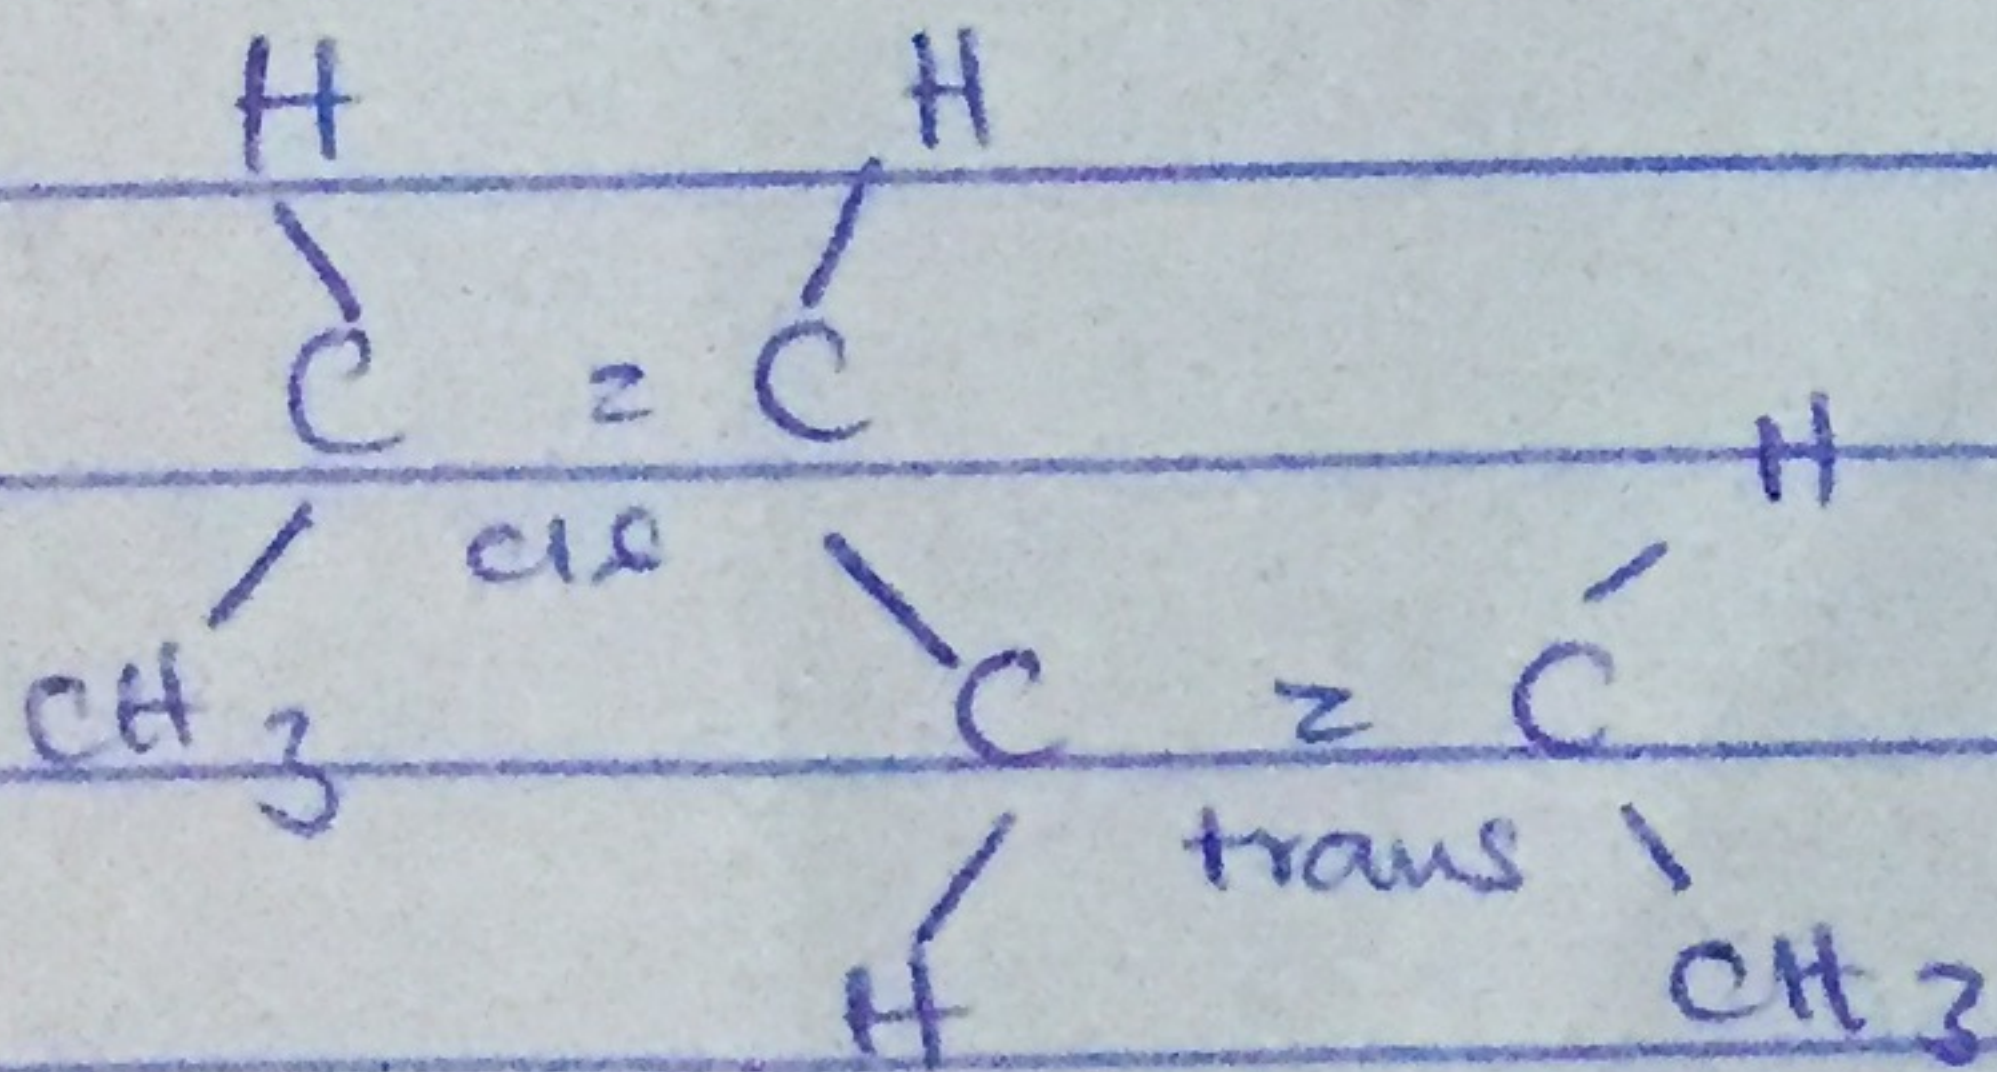 H H
C = C
H
cis
CH3 C = C
trans
H CH3